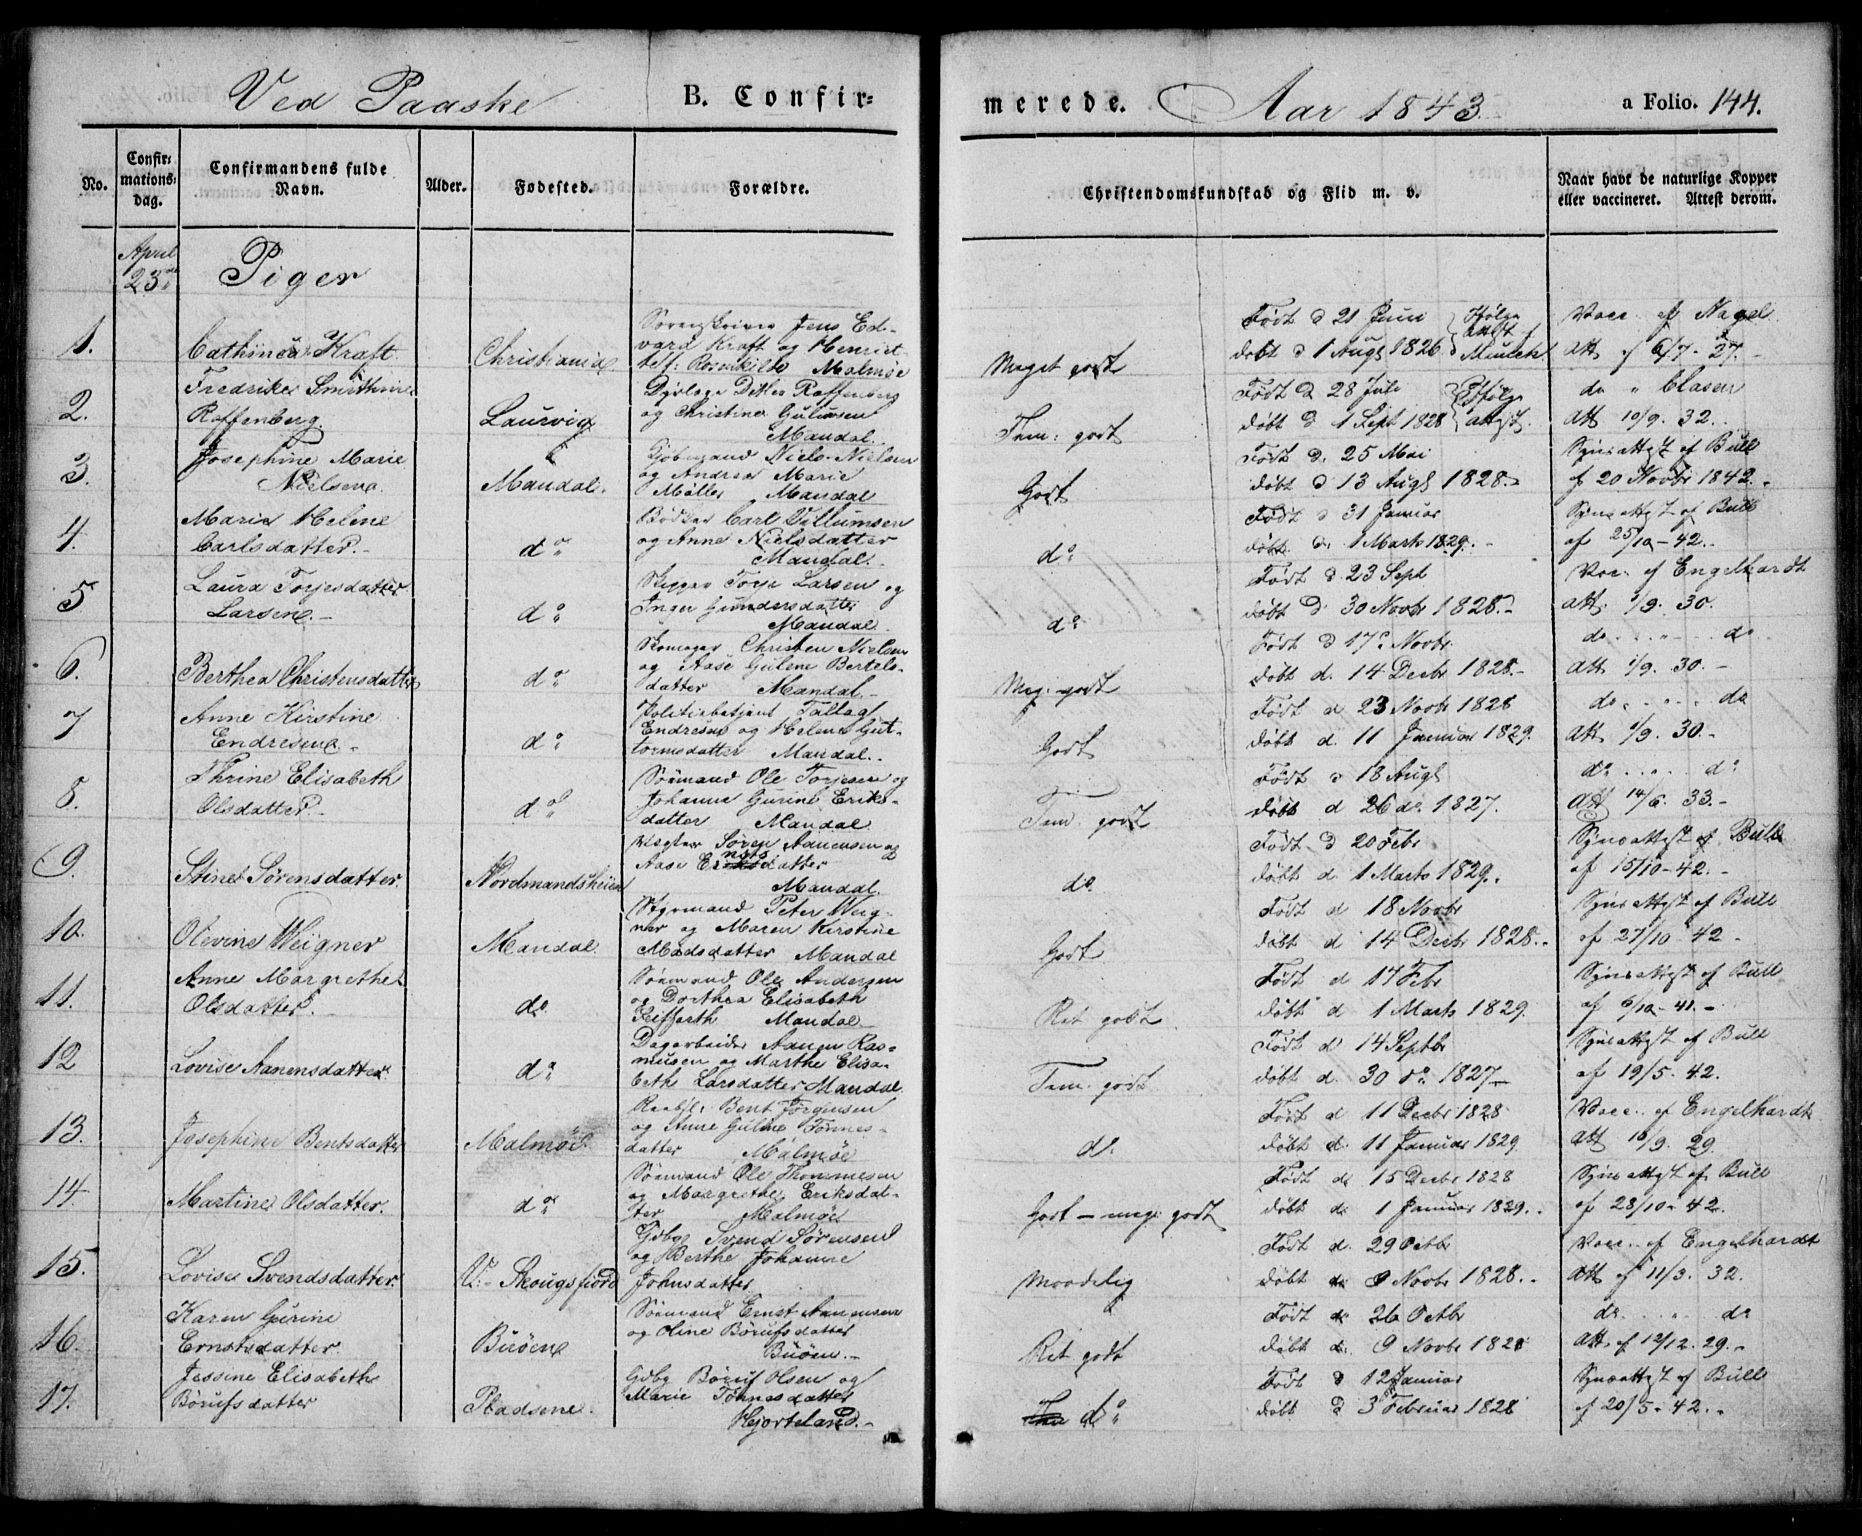 Ved Paaske B. Confir=
merede. Aar 1843. a Folio. 144.
No. Confir=mations=dag. Confirmandens fulde Navn. Alder. Fødested. Forældre. Christendomskundskab og Flid m. v. Naar havt de naturlige Kopper eller vaccineret. Attest derom.
April
23
Piger
1. Cathinca Kraft. Christiania
Sorenskriver Jens Ed-
vard Kraft og Henriet-
Malmøe
Meget godt
Født d 21 Juni
døbt d 1 Augt 1826
Vacc. af Nagel
Att. 27.
2. Fredrikke Smithine
Roffenberg. Laurvig
og Christine
Mandal.
Tem: godt
Født d 28 Juli
døbt d 1 Sept 1828
do " Clasen
Att 10/9. 32.
3. Josephine Marie
Nielsen. Mandal.
Niels Nielsen
og Andrea Marie
Møller Mandal
Godt
Født d. 25 Mai
døbt d 13 Augt 1828.
Synsattest af Bull
af 20 Novbr 1842.
4. Marie Helene
Carlsdatter. do
Bødker Carl Villumsen
og Anne Nielsdatter
Mandal.
do
Født d 31 Januar
døbt d. 1 Marts 1829.
Synsattest af Bull
af 25/10-42.
5 Laura Torjesdatter
Larsen. do
Skipper Torje Larsen og
Inger Gundersdatter
Mandal.
do
Født d. 23 Sept
døbt d. 30 Novbr 1828.
Vacc. af Engelhardt
Att. 1/9. 30.
6. Berthea Christensdatter do
Skomager Christen Nielsen
og Aase Gulene Bertels-
datter Mandal.
Meg: godt
Født d 17 Novbr
døbt d. 14 Decbr 1828.
do do
Att 1/9. 30.
7 Anne Kirstine
Endresen. do
Politiebetjent Tallag
Endresen og Helene Gut-
tormsdatter Mandal.
Godt
Født d 23 Novbr 1828
døbt d. 11 Januar 1829.
do do
Att 1/9. 30.
8. Thrine Elisabeth
Olsdatter. do
Sømand Ole Torjesen og
Johanne Gurine Eriks-
datter Mandal
Tem. godt
Født d 18 Augt
døbt d 26 do 1827.
do do
Att 14/6. 33.
9. Stine Sørensdatter. Nordmandsheien
Vægter Søren Aanensen og
Aase datter
Mandal.
do
Født d 20 Febr
døbt d. 1 Marts 1829.
Synsattest af Bull
af 15/10-42.
10. Olevine Weigner Mandal
Styrmand Peter Weig-
ner og Maren Kirstine
Madsdatter Mandal
Godt
Født d 18 Novbr
døbt d 14 Decbr 1828.
Synsattest af Bull
af 27/10-42
11. Anne Margrethe
Olsdatter. do
Sømand Ole Andersen
og Dorthea Elisabeth
Mandal
Ret godt
Født d 17 Febr
døbt d 1 Marts 1829.
Synsattest af Bull
af 6/10-41.
12 Lovise Aanensdatter do
Dagarbeider Aanen Ras-
musen og Marthe Elisa-
beth Larsdatter Mandal
Tem. godt
Født d 14 Septbr
døbt d. 30 do 1827
Synsattest af Bull
af 19/5-42.
13. Josephine Bentsdatter Malmøe
Bent Jørgensen
og Anne Tønnes-
datter Malmøe
do
Født d 11 Decbr 1828
døbt d. 11 Januar 1829
Vacc. af Engelhardt
Att 16/9. 29.
14. Martine Olsdatter. do
Sømand Ole Thommesen
og Margrethe Eriksdat-
ter Malmøe
Godt - meg: godt
Født d. 15 Decbr 1828
døbt d. 1 Januar 1829.
Synsattest af Bull
af 28/10-42.
15. Lovise Svendsdatter. V: Skougsfjord
Gdbr Svend Sørensen
og Berthe Johanne
Johnsdatter
Maadelig
Født d. 29 Octbr
døbt d. 9 Novbr 1828.
Vacc. af Engelhardt
Att af 11/3. 32.
16. Karen Gurine
Ernstsdatter. Buøen
Sømand Ernst Aanensen
og Oline Børufsdatter
Buøen.
Ret godt
Født d. 26 Octbr
døbt d. 9 Novbr 1828
do do
Att af 12/12. 29.
17. Jessine Elisabeth
Børufsdatter Pladsen.
Gdbr Børuf Olsen og
Marie Tønnesdatter
Hjorteland.
do
Født d 12 Januar
døbt d 3 Februar 1828
Synsattest af Bull
af 20/5-42.